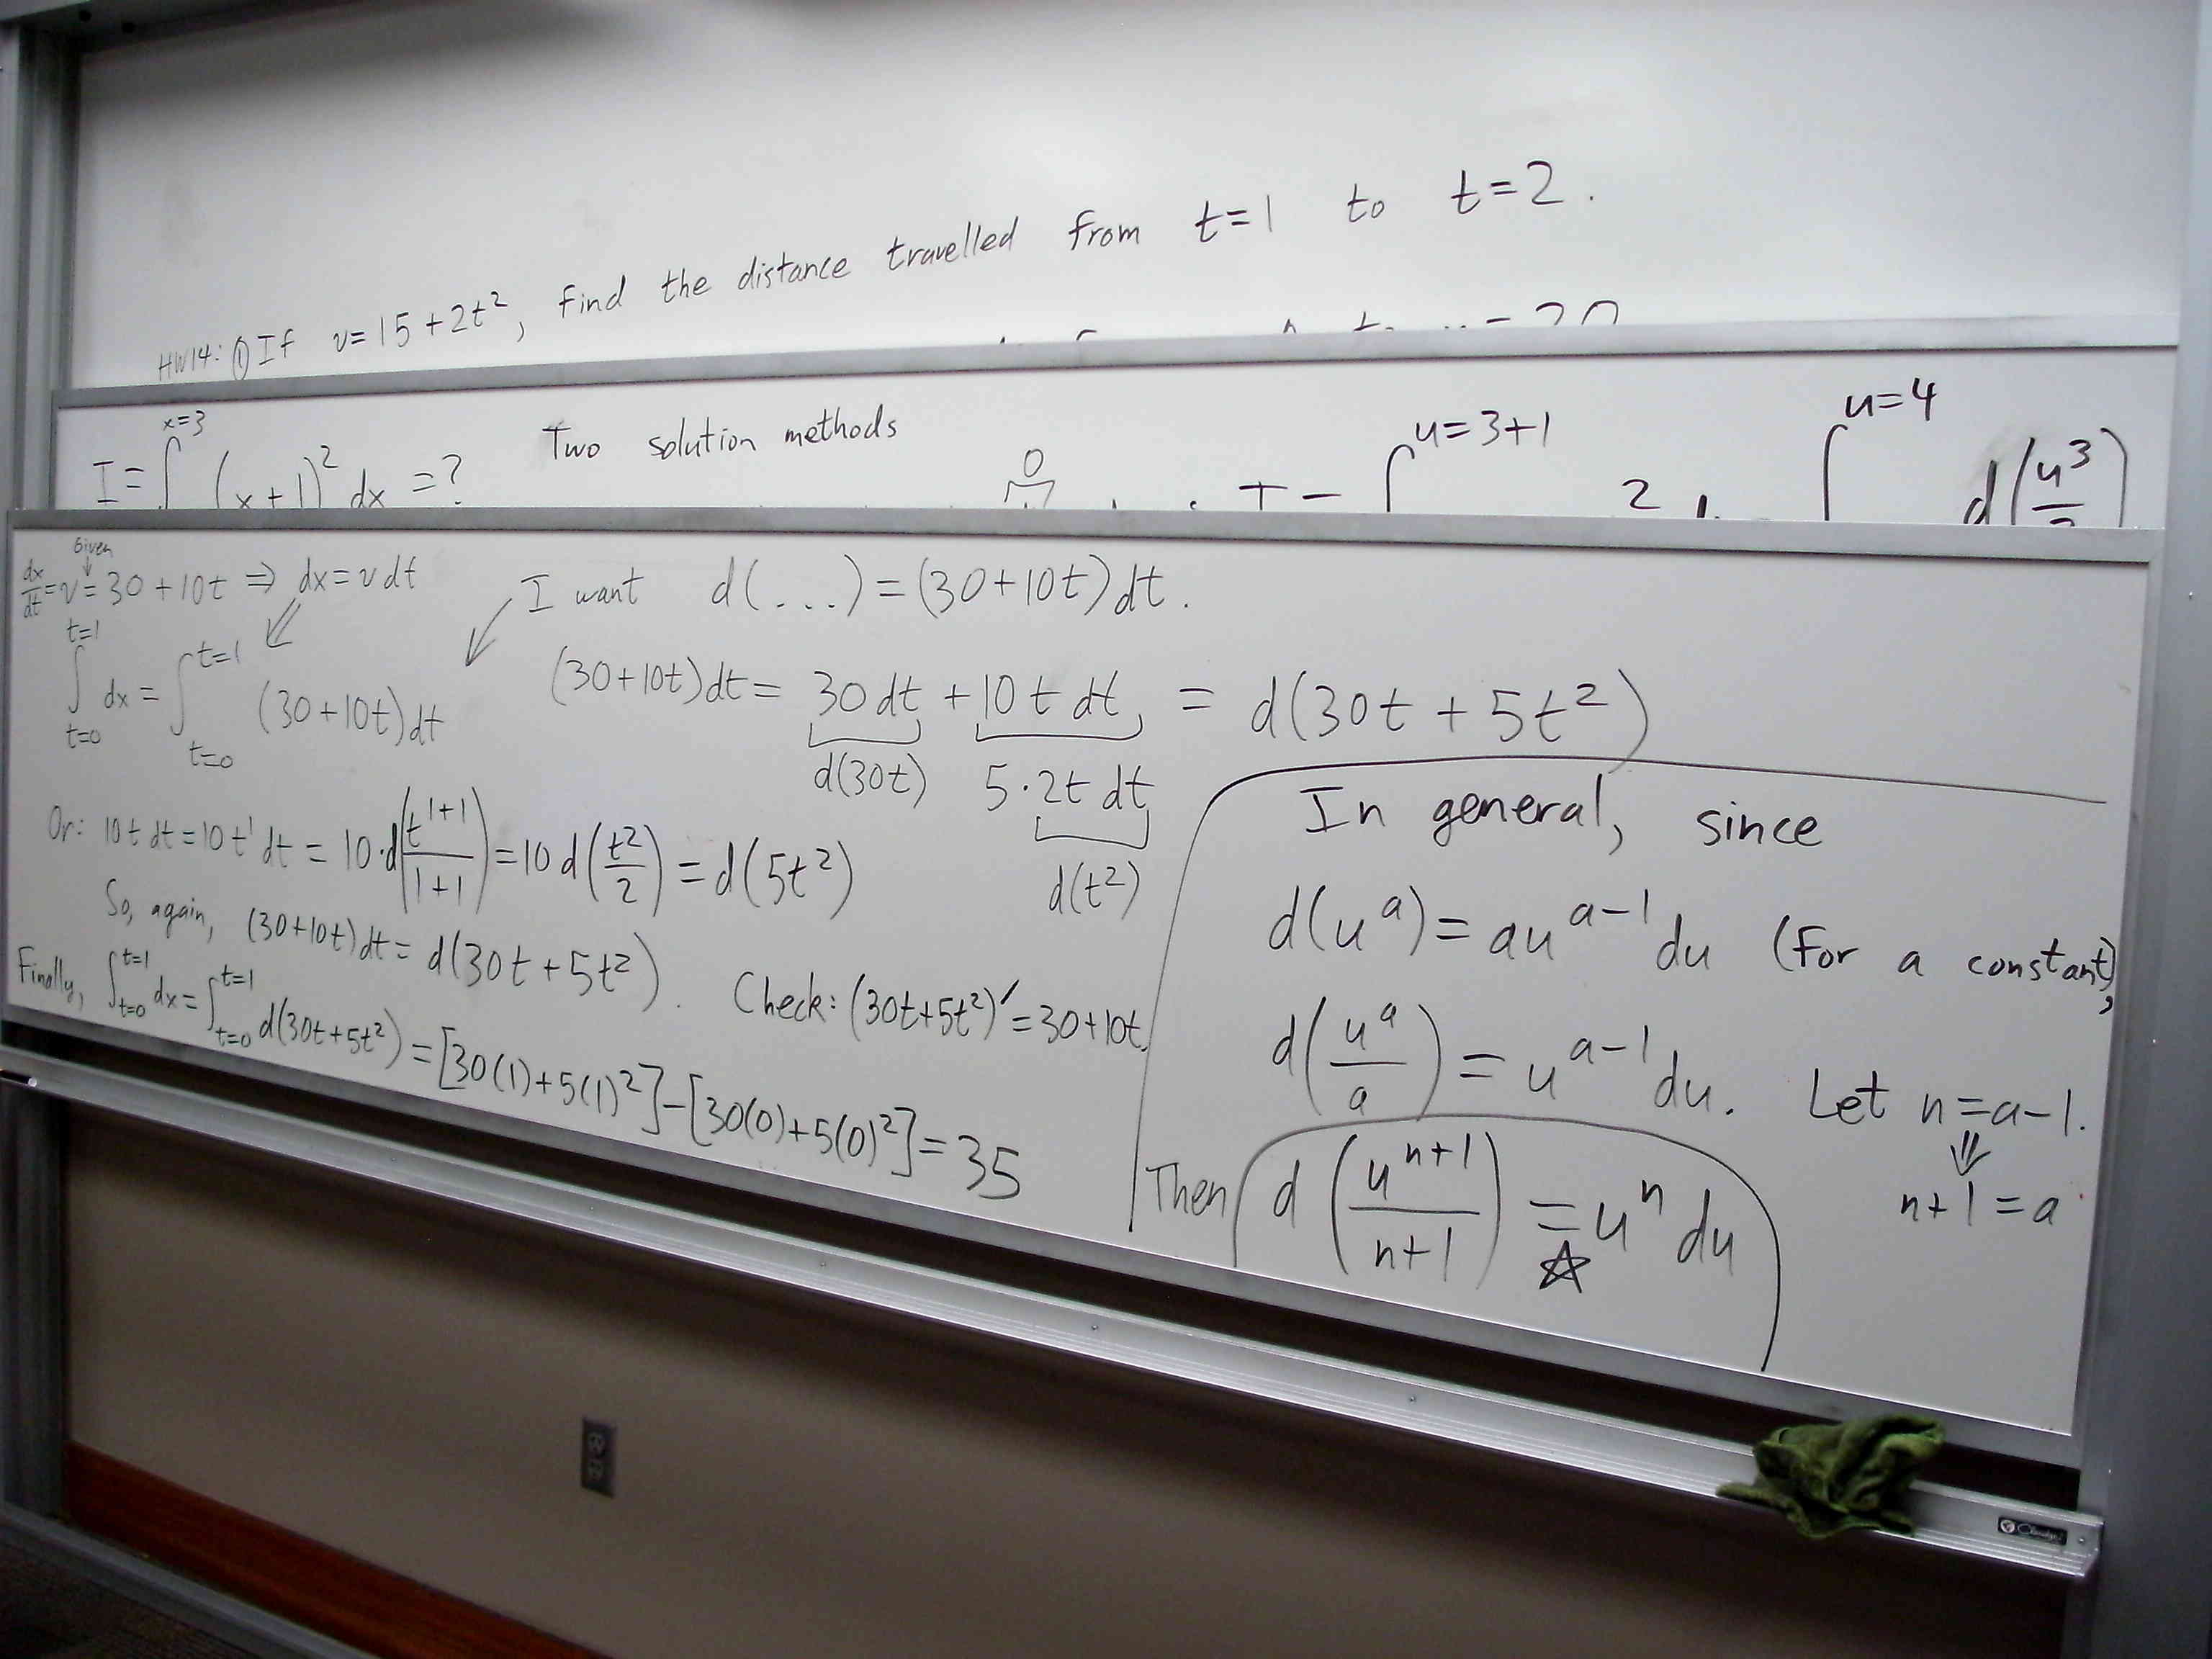 HW14: ① If v = 15 + 2t², find the distance travelled from t=1 to t=2.
I = ∫^{x=3} (x+1)² dx = ?
Two solution methods
u=3+1
u=4
d(u³
Given
dx/dt = v = 30 + 10t ⇒ dx = v dt
∫_{t=0}^{t=1} dx = ∫_{t=0}^{t=1} (30+10t) dt
I want d(...) = (30+10t) dt.
(30+10t) dt = 30 dt + 10 t dt = d(30t + 5t²)
d(30t) 5·2t dt
d(t²)
Or: 10 t dt = 10 t¹ dt = 10·d(t^{1+1}/(1+1)) = 10 d(t²/2) = d(5t²)
So, again, (30+10t) dt = d(30t + 5t²).
Check: (30t+5t²)′ = 30+10t.
Finally, ∫_{t=0}^{t=1} dx = ∫_{t=0}^{t=1} d(30t+5t²) = [30(1)+5(1)²] − [30(0)+5(0)²] = 35
In general, since
d(u^a) = au^{a−1} du (for a constant),
d(u^a/a) = u^{a−1} du. Let n=a−1.
⇓
n+1 = a
Then d(u^{n+1}/(n+1)) = u^n du
☆